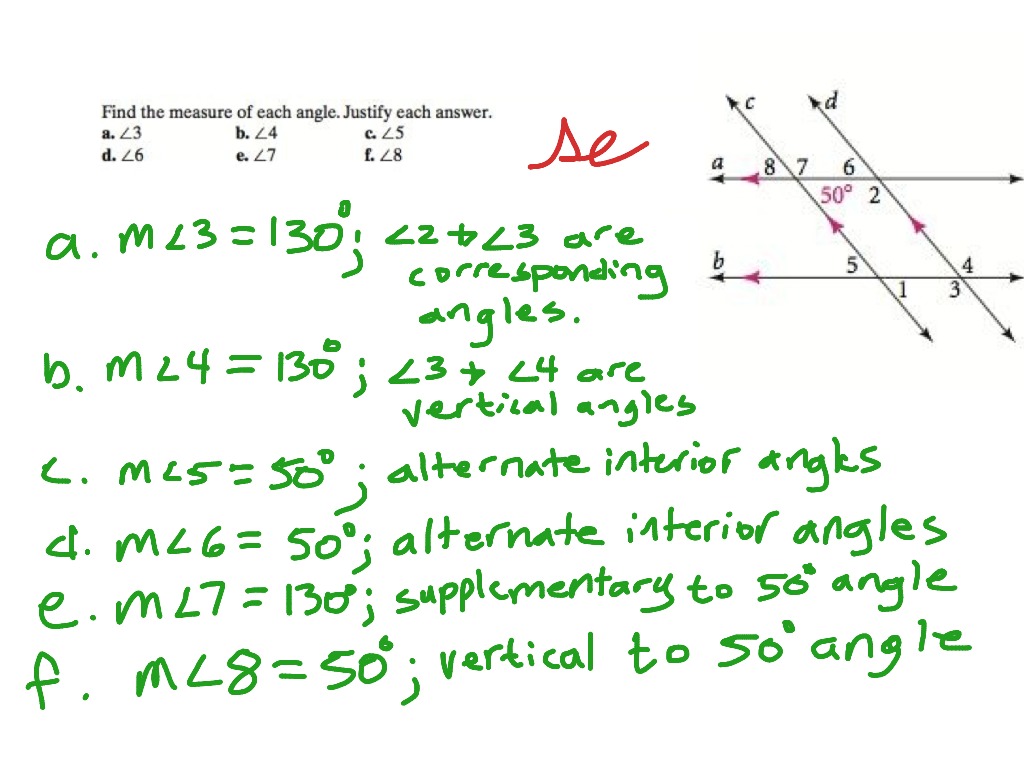 Find the measure of each angle. Justify each answer.
a. ∠3 b. ∠4 c. ∠5
d. ∠6 e. ∠7 f. ∠8
se
c d
a 8 7 6
50° 2
b 5 4
1 3
a. m∠3 = 130°; ∠2 + ∠3 are
corresponding
angles.
b. m∠4 = 130°; ∠3 + ∠4 are
vertical angles
c. m∠5 = 50°; alternate interior angles
d. m∠6 = 50°; alternate interior angles
e. m∠7 = 130°; supplementary to 50° angle
f. m∠8 = 50°; vertical to 50° angle